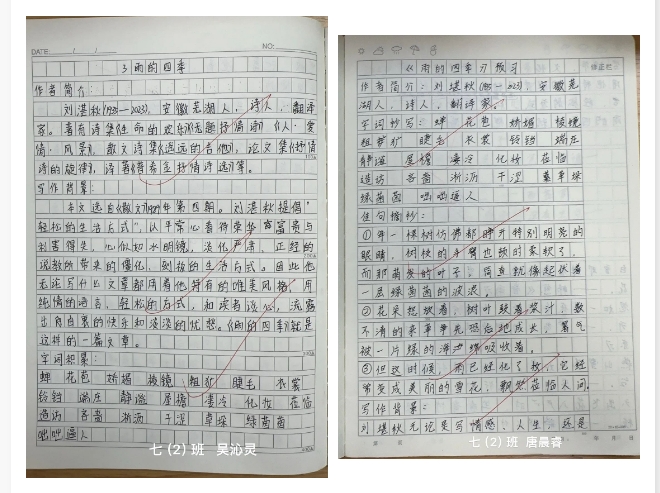 DATE: / /
NO:
3 雨的四季
作者简介:
刘湛秋(1935—2023), 安徽芜湖人, 诗人, 翻译
家。著有诗集《生命的欢乐》《无题抒情诗》《人·爱
情·风景》, 散文诗集《遥远的吉他》, 论文集《抒情
诗的旋律》, 译著《普希金抒情诗选》等。
写作背景:
本文选自《散文》年第四期。刘湛秋提倡"
轻松的生活方式", 以平常心看待荣华富贵与
利害得失, 心似如水明镜, 淡化严肃、正经的
说教所带来的僵化、刻板的生活方式。因此他
无论写什么文章都用着他特有的唯美风格, 用
纯情的语言、轻松的方式, 和读者谈心, 流露
出自由自在的快乐和淡淡的忧愁。《雨的四季》就是
这样的一篇文章。
字词积累:
蝉 花苞 娇媚 棱镜 粗犷 睫毛 衣裳
铃铛 端庄 静谧 屋檐 凄冷 化妆 莅临
造访 吝啬 淅沥 干涩 草垛 绿茵茵
咄咄逼人
七(2)班 吴沁灵
《雨的四季》预习
作者简介: 刘湛秋(1935—2023), 安徽芜
湖人, 诗人, 翻译家。
字词抄写: 蝉 花苞 娇媚 棱镜
粗犷 睫毛 衣裳 铃铛 端庄
静谧 屋檐 凄冷 化妆 莅临
造访 吝啬 淅沥 干涩 草垛
绿茵茵 咄咄逼人
佳句摘抄:
①每一棵树仿佛都睁开特别明亮的
眼睛, 树枝的手臂也顿时柔软了,
而那萌发的叶子, 简直就像起伏着
一层绿茵茵的波浪。
②花朵怒放着, 树叶鼓着浆汁, 数
不清的杂草争先恐后地成长, 暑气
被一片绿的海绵吸收着。
③但这时候, 雨已经化了妆, 它经
常变成美丽的雪花, 飘然莅临人间。
写作背景:
刘湛秋无论是写情感、人生, 还是
七(2)班 唐晨睿